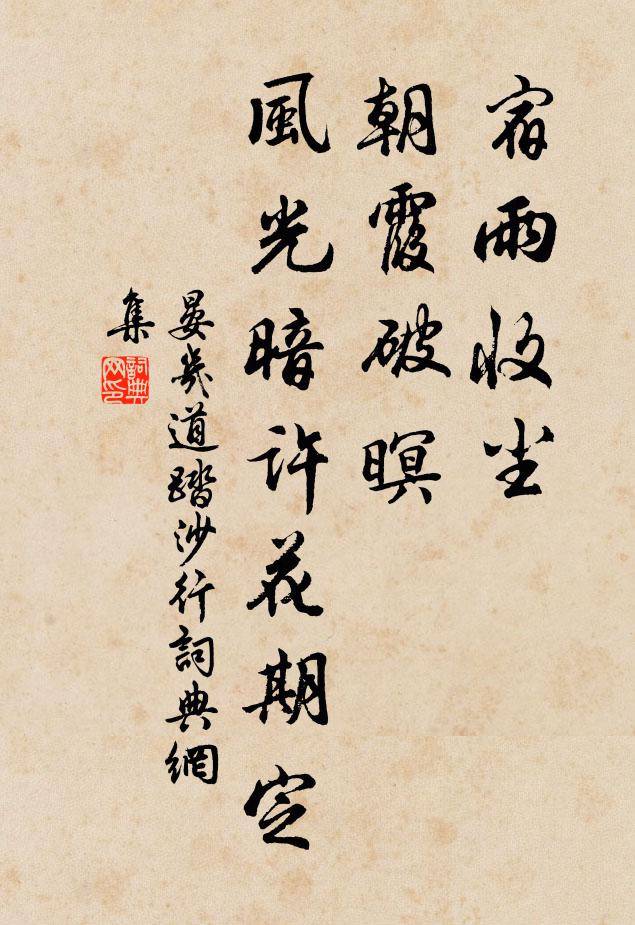 宿雨收尘
朝霞破暝
風光暗许花期定
晏幾道踏沙行詞典網
集
詞典网印